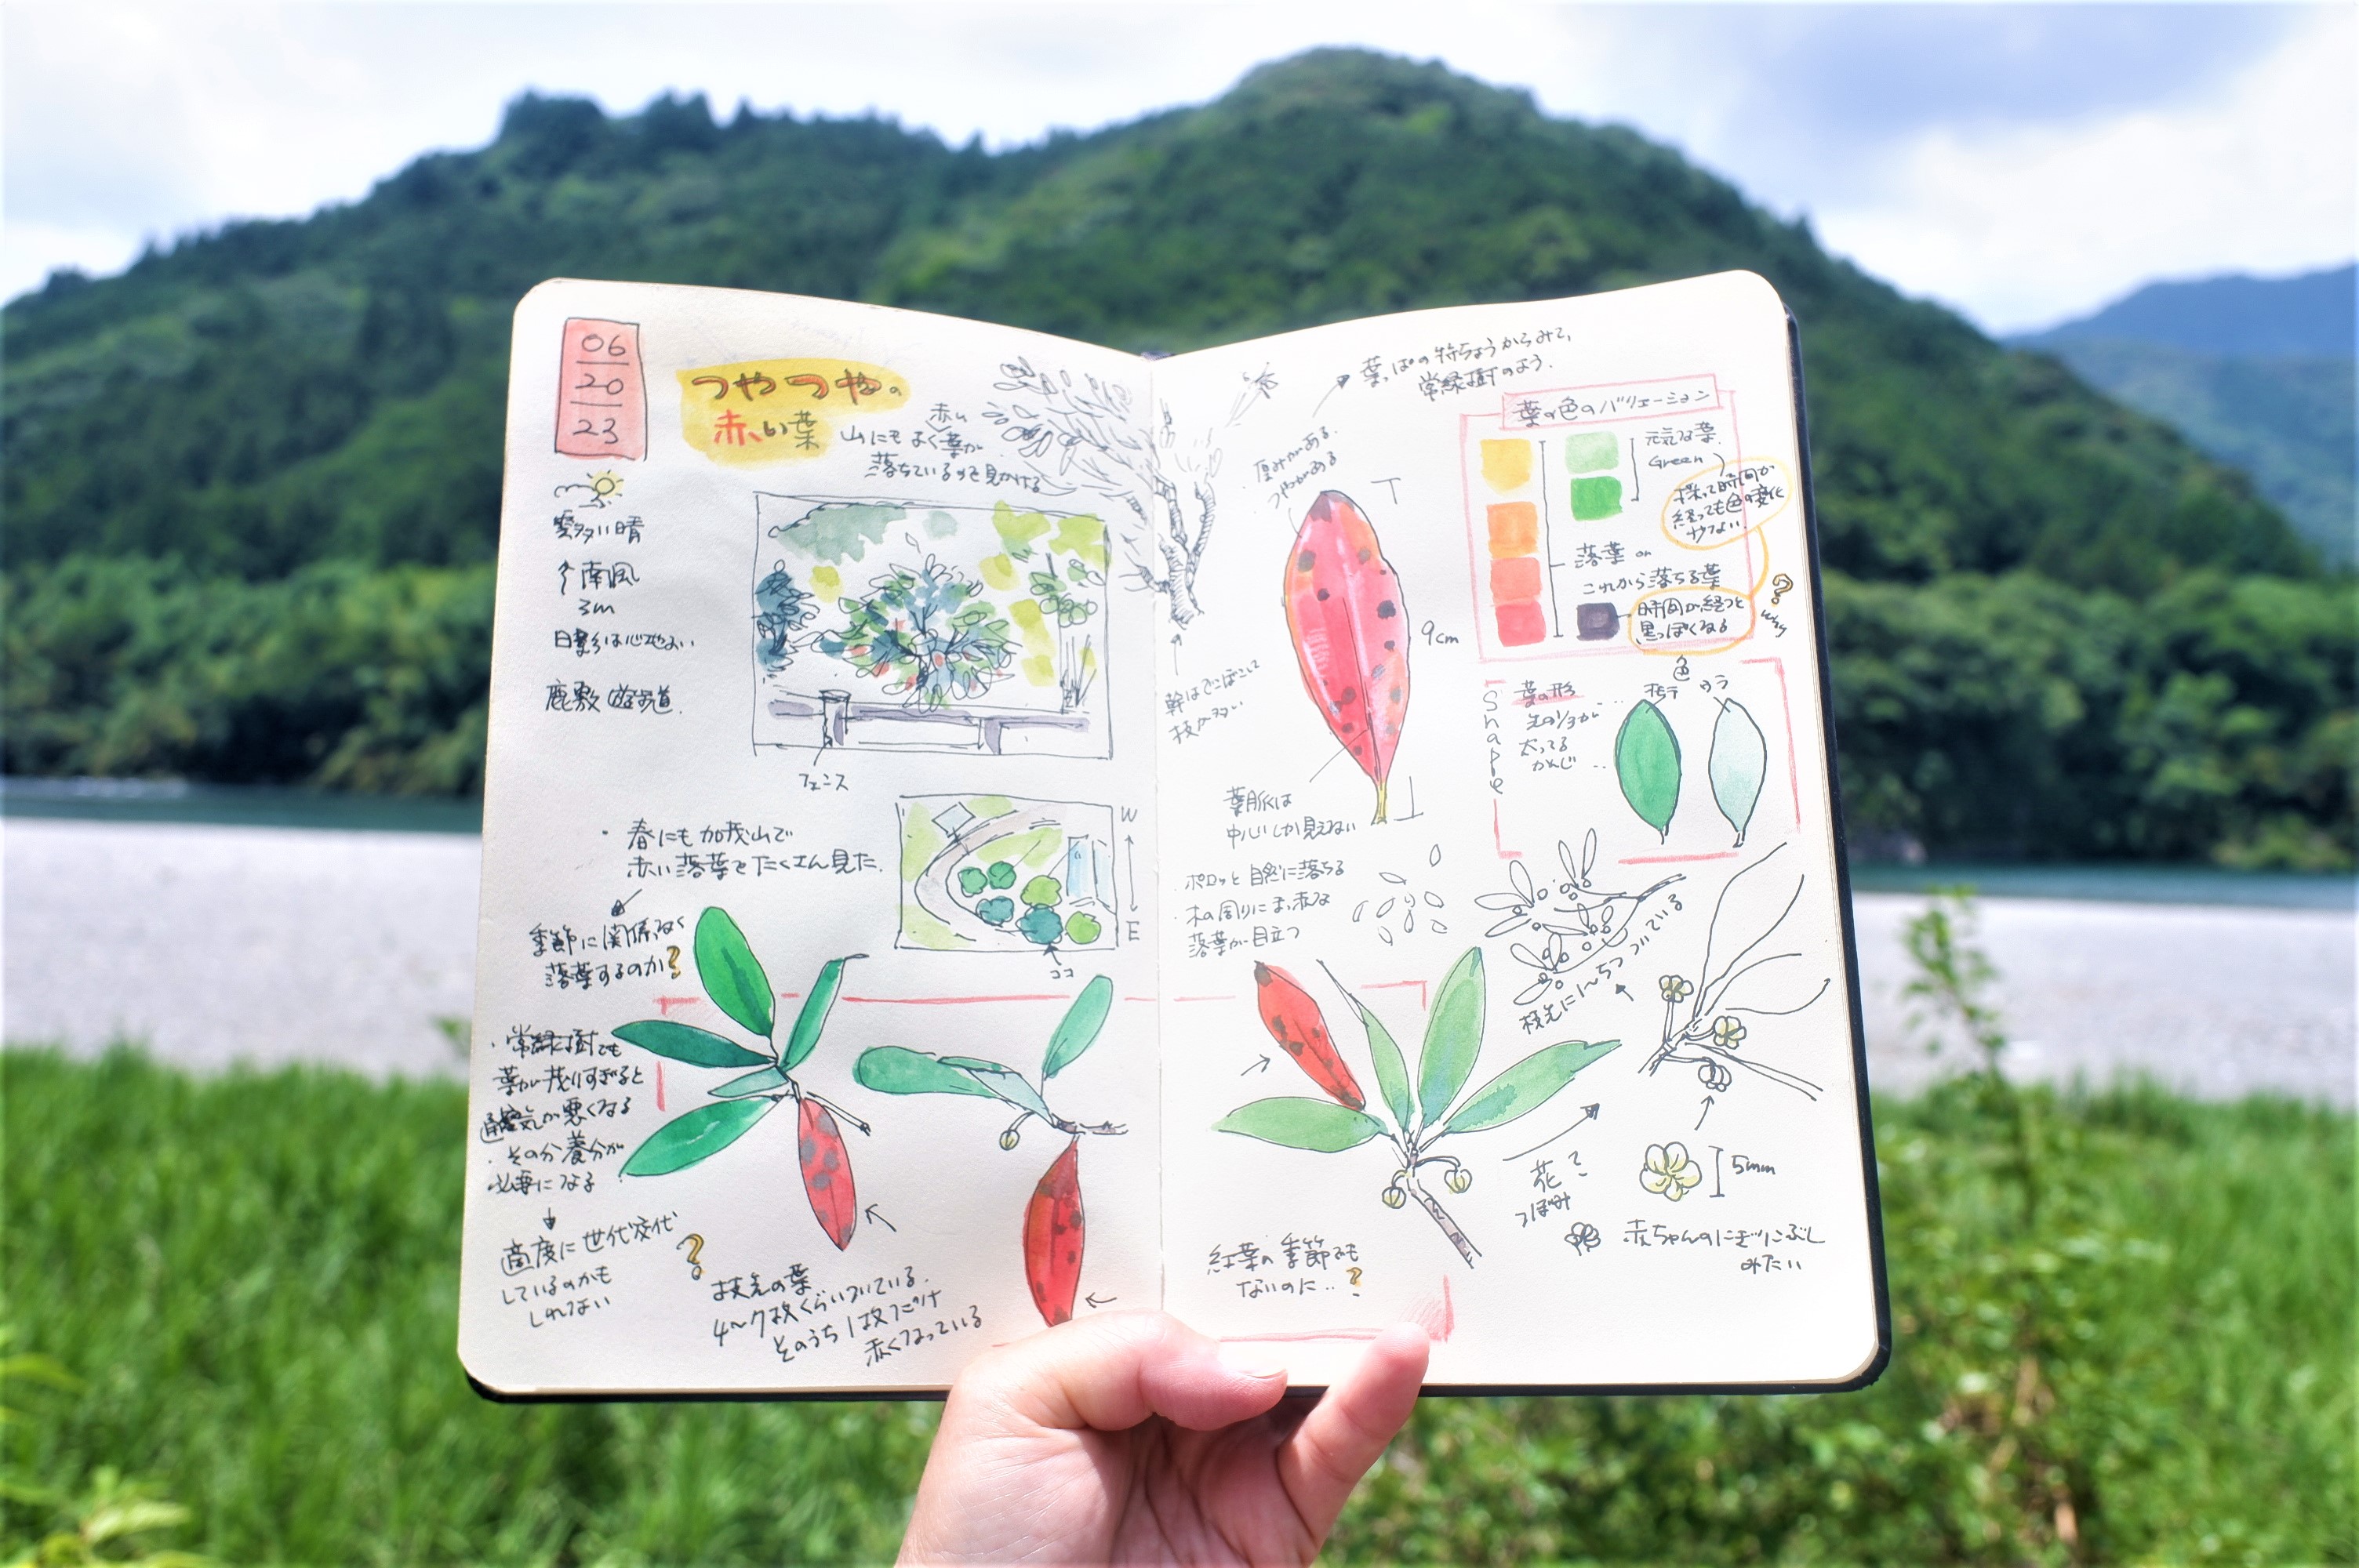 06
20
23
つやつやの
赤い葉
山にもよく赤い葉が
落ちているのを見かける
雲多い晴
南風
3m
日影は心地よい
鹿敷 遊歩道.
フェンス
・春にも加茂山で
赤い落葉をたくさん見た.
季節に関係なく
落葉するのか?
W
E
ココ
・常緑樹でも
葉が茂りすぎると
通気が悪くなる
・その分養分が
必要になる
適度に世代交代
しているのかも
しれない
?
枝先の葉
4〜7枚くらいついている.
そのうち1枚だけ
赤くなっている
葉っぱの特ちょうからみて,
常緑樹のよう.
・厚みがある.
・つやがある
9cm
幹はでこぼこして
枝が多い
葉脈は
中心しか見えない
・ポロッと自然に落ちる
・木の周りにまっ赤な
落葉が目立つ
葉の色のバリエーション
元気な葉.
Green
採って時間が
経っても色の変化
少ない.
落葉 or
これから落ちる葉
時間が経つと
黒っぽくなる
?
why
Shape
葉の形
先の1/3が…
太ってる
かんじ…
色
オモテ
ウラ
枝先に1〜5つついている
花と
つぼみ
5mm
赤ちゃんのにぎりこぶし
みたい
紅葉の季節でも
ないのに‥?